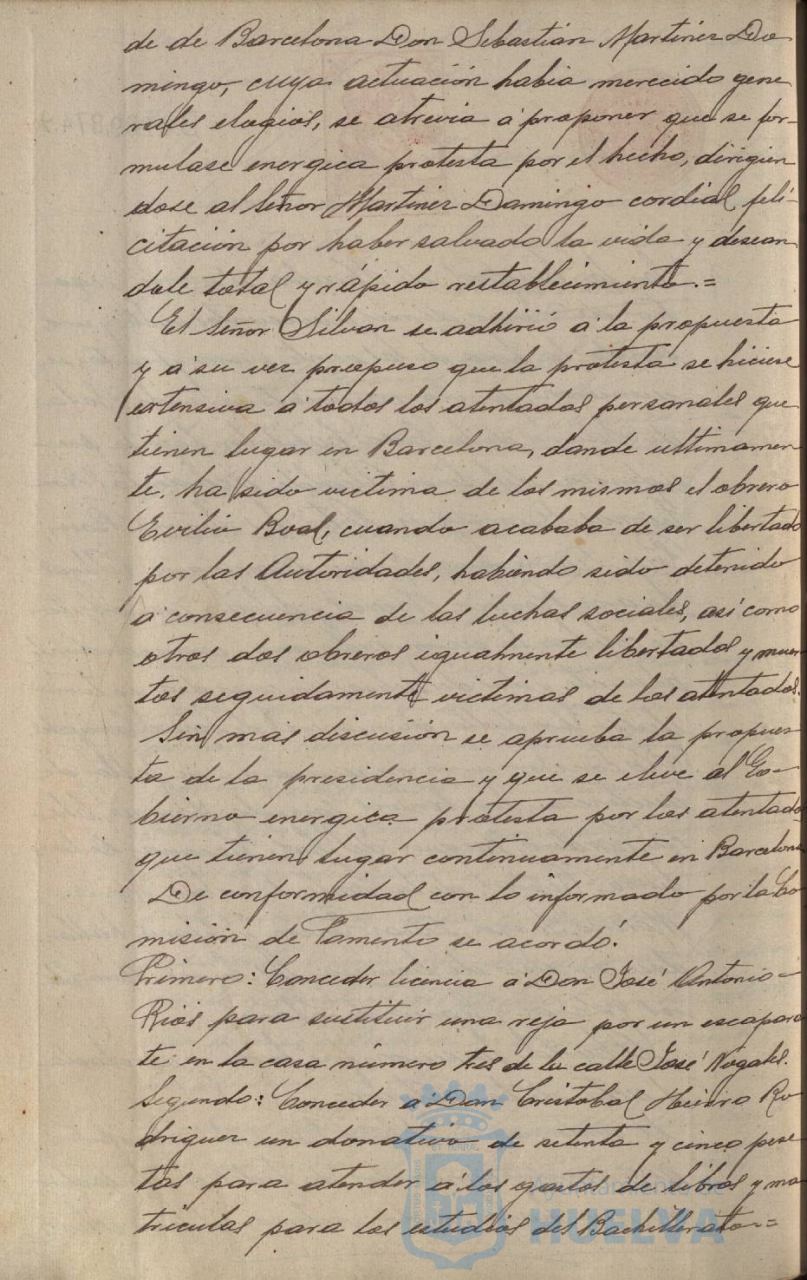 de de Barcelona Don Sebastián Martinez Do
mingo, cuya actuación habia merecido gene
rales elogios, se atrevia á proponer que se for-
mulase energica protesta por el hecho, dirigien
dose al Señor Martinez Domingo cordial feli-
citación por haber salvado la vida y desean
dole total y rápido restablecimiento.=
El Señor Silvan se adhirió á la propuesta
y á su vez propuso que la protesta se hiciese
extensiva á todos los atentados personales que
tienen lugar en Barcelona, donde ultimamen
te, ha sido victima de los mismos el obrero
Evilio Boal, cuando acababa de ser libertado
por las Autoridades, habiendo sido detenido
á consecuencia de las luchas sociales, así como
otros dos obreros igualmente libertados y muer
tos seguidamente victimas de los atentados.
Sin más discusión se aprueba la propues
ta de la presidencia y que se eleve al Go-
bierno energica protesta por los atentados
que tienen lugar continuamente en Barcelona
De conformidad con lo informado por la Co
misión de Fomento se acordó:
Primero: Conceder licencia á Don José Antonio
Rios para sustituir una reja por un escapara
te en la casa número tres de la calle José Nogales.
Segundo: Conceder á Don Cristobal Hierro Ro
driguez un donativo de setenta y cinco pese
tas para atender á los gastos de libros y ma
triculas para los estudios del Bachillerato=
HUELVA